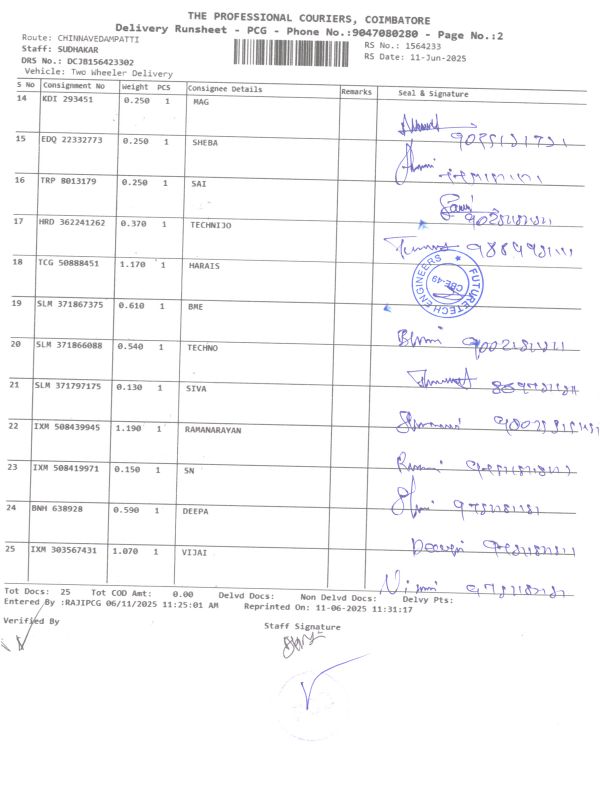 THE PROFESSIONAL COURIERS, COIMBATORE
Delivery Runsheet - PCG - Phone No.:9047080280 - Page No.:2
Route: CHINNAVEDAMPATTI
RS No.: 1564233
Staff: SUDHAKAR
RS Date: 11-Jun-2025
DRS No.: DCJB156423302
Vehicle: Two Wheeler Delivery
S No Consignment No Weight PCS Consignee Details Remarks Seal & Signature
14 KDI 293451 0.250 1 MAG
15 EDQ 22332773 0.250 1 SHEBA
16 TRP 8013179 0.250 1 SAI
17 HRD 362241262 0.370 1 TECHNIJO
18 TCG 50888451 1.170 1 HARAIS
FUTURETECH ENGINEERS
CBE-49
19 SLM 371867375 0.610 1 BME
20 SLM 371866088 0.540 1 TECHNO
21 SLM 371797175 0.130 1 SIVA
22 IXM 508439945 1.190 1 RAMANARAYAN
23 IXM 508419971 0.150 1 SN
24 BNH 638928 0.590 1 DEEPA
25 IXM 303567431 1.070 1 VIJAI
Tot Docs: 25 Tot COD Amt: 0.00 Delvd Docs: Non Delvd Docs: Delvy Pts:
Entered By :RAJIPCG 06/11/2025 11:25:01 AM Reprinted On: 11-06-2025 11:31:17
Verified By
Staff Signature